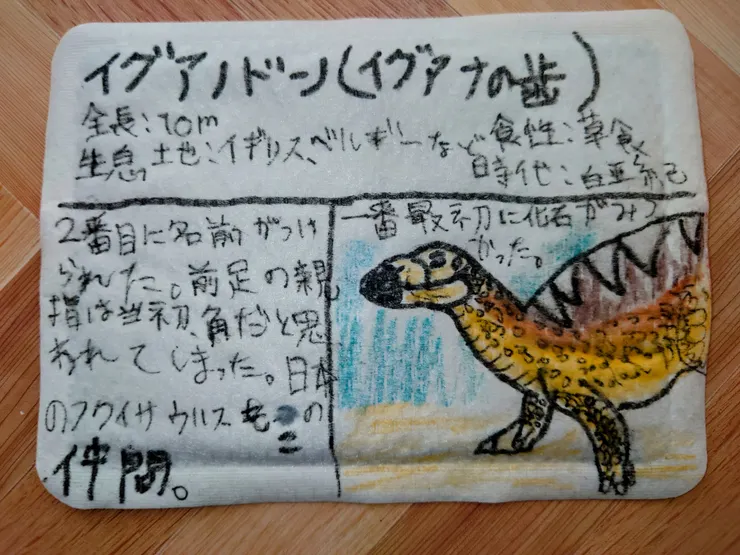 イグアノドン(イグアナの歯)
全長:10m
生息土地:イギリス、ベルギーなど
食性:草食
時代:白亜紀
2番目に名前がつけ
られた。前足の親
指は当初、角だと思
われてしまった。日本
のフクイサウルスもこの
仲間。
一番最初に化石がみつ
かった。